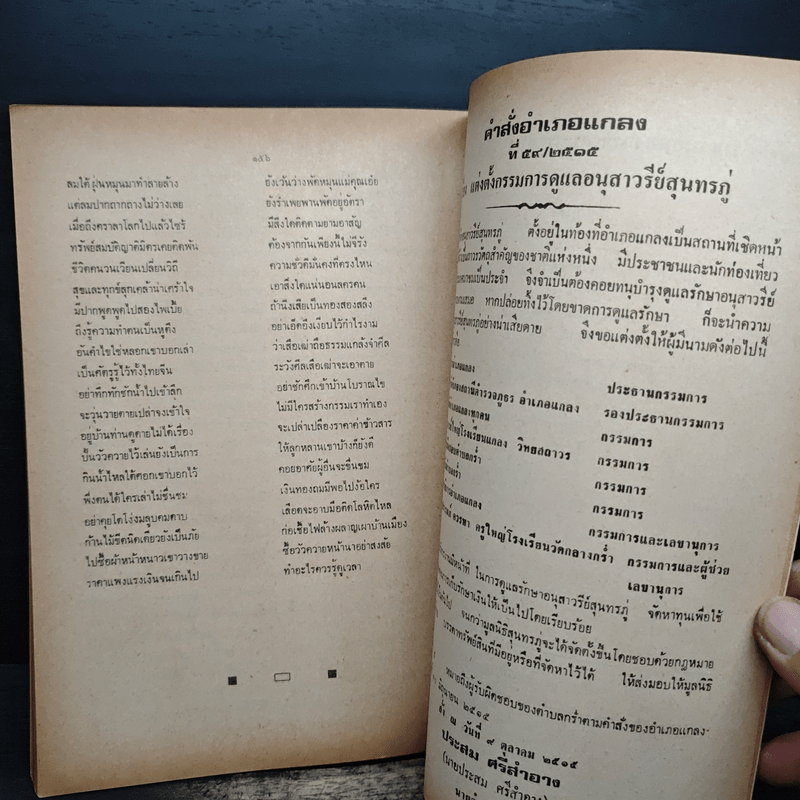 ๑๕๖
สมได้ ฝุ่นหมุนมาทำลายล้าง ยังเว้นว่างพัดหมุนแม่คุณเอ๋ย
แต่ลมปากถากถางไม่ว่างเลย ยังร่ำเพยพานพัดอยู่อัตรา
เมื่อถึงคราลาโลกไปแล้วไซร้ มีสิ่งใดติดตามยามอาสัญ
ทรัพย์สมบัติญาติมิตรเคยติดพัน ต้องจากกันเพียงนี้ไม่จีรัง
ชีวิตคนวนเวียนเปลี่ยนวิถี ความชั่วดีมั่นคงที่ตรงไหน
สุขและทุกข์ลุกเคล้าน่าเศร้าใจ เอาสิ่งใดแน่นอนละครคน
มีปากพูดพูดไปสองไพเบี้ย ถ้านิ่งเสียเป็นทองสองสลึง
ถึงรู้ความทำตนเป็นหูตึง อย่าเอ็ดอึงเงียบไว้กำไรงาม
อันคำไขใช่หลอกเขาบอกเล่า ว่าเสือเฒ่าถือธรรมแกล้งจำศีล
เป็นศัตรูรู้ไว้ทั้งไทยจีน ระวังศีลเสือเฒ่าจะเอาตาย
อย่าทึกทักชักน้ำไปเข้าลึก อย่าชักศึกเข้าบ้านโบราณไข
จะวุ่นวายตายเปล่าจงเข้าใจ ไม่มีใครสร้างกรรมเราทำเอง
อยู่บ้านท่านดูดายไม่ได้เรื่อง จะเปล่าเปลืองราคาค่าข้าวสาร
ปั้นวัวควายไว้เล่นยังเป็นการ ให้ลูกหลานเขาบ้างก็ยังดี
กินน้ำไหลใต้ศอกเขาบอกไว้ คอยอาศัยผู้อื่นจะขื่นขม
พึ่งตนได้ใครเล่าไม่ชื่นชม เงินทองถมมีพอไปง้อใคร
อย่าคุยโตโง่งมลูบคมดาบ เลือดจะอาบมือติดโลหิตไหล
ก้านไม้ขีดนิดเดียวยังเป็นภัย ก่อเชื้อไฟล้างผลาญเผาบ้านเมือง
ไปซื้อผ้าหน้าหนาวเขาวางขาย ซื้อวัวควายหน้านาอย่าสงสัย
ราคาแพงแรงเงินจนเกินไป ทำอะไรควรรู้ดูเวลา
คำสั่งอำเภอแกลง
ที่ ๕๙/๒๕๑๕
แต่งตั้งกรรมการดูแลอนุสาวรีย์สุนทรภู่
สุนทรภู่ ตั้งอยู่ในท้องที่อำเภอแกลงเป็นสถานที่เชิดหน้า
สำคัญของชาติแห่งหนึ่ง มีประชาชนและนักท่องเที่ยว
เป็นประจำ จึงจำเป็นต้องคอยทนุบำรุงดูแลรักษาอนุสาวรีย์
หากปล่อยทิ้งไว้โดยขาดการดูแลรักษา ก็จะนำความ
สุนทรภู่อย่างน่าเสียดาย จึงขอแต่งตั้งให้ผู้มีนามดังต่อไปนี้
ประธานกรรมการ
อำเภอแกลง รองประธานกรรมการ
กรรมการ
โรงเรียนแกลง วิทยสถาวร กรรมการ
กรรมการ
กรรมการ
กรรมการและเลขานุการ
ครูใหญ่โรงเรียนวัดกลางกร่ำ กรรมการและผู้ช่วย
เลขานุการ
หน้าที่ ในการดูแลรักษาอนุสาวรีย์สุนทรภู่ จัดหาทุนเพื่อใช้
รักษาเงินให้เป็นไปโดยเรียบร้อย
จนกว่ามูลนิธิสุนทรภู่จะได้จัดตั้งขึ้นโดยชอบด้วยกฎหมาย
ทรัพย์สินที่มีอยู่หรือที่จัดหาไว้ได้ ให้ส่งมอบให้มูลนิธิ
หมายถึงผู้รับผิดชอบของตำบลกร่ำตามคำสั่งของอำเภอแกลง-
๒๕๑๕
สั่ง ณ วันที่ ๙ ตุลาคม ๒๕๑๕
ประสม ศรีสำอาง
(นายประสม ศรีสำอาง)